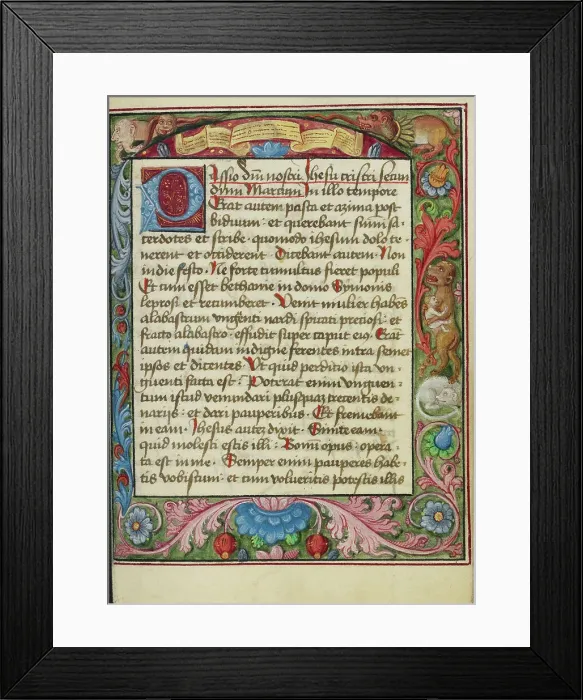 Passio Dñi nostri Jhesu cristi secun
dum Marcum In illo tempore
Erat autem pasca et azima post
biduum · et querebant sum̄i sa⸗
cerdotes et scribe · quomodo ihesum dolo te⸗
nerent et occiderent · Dicebant autem · Non
in die festo · Ne forte tumultus fieret populi
Et cum esset bethanie in domo Symonis
leprosi et recumberet · Venit mulier habēs
alabastrum vngenti nardi spicati preciosi · et
fracto alabastro · effudit super caput eiꝰ · Erāt
autem quidam indigne ferentes intra semet
ipsos et dicentes · Vt quid perditio ista vn⸗
guenti facta est · Poterat enim vnguen⸗
tum istud venundari plusquaz trecentis de⸗
narijs · et dari pauperibus · Et fremebant
in eam · Jhesus autez dixit · Sinite eam ·
quid molesti estis illi · Bonū opus · opera⸗
ta est in me · Semper enim pauperes habe⸗
tis vobiscum · et cum volueritis potestis illis